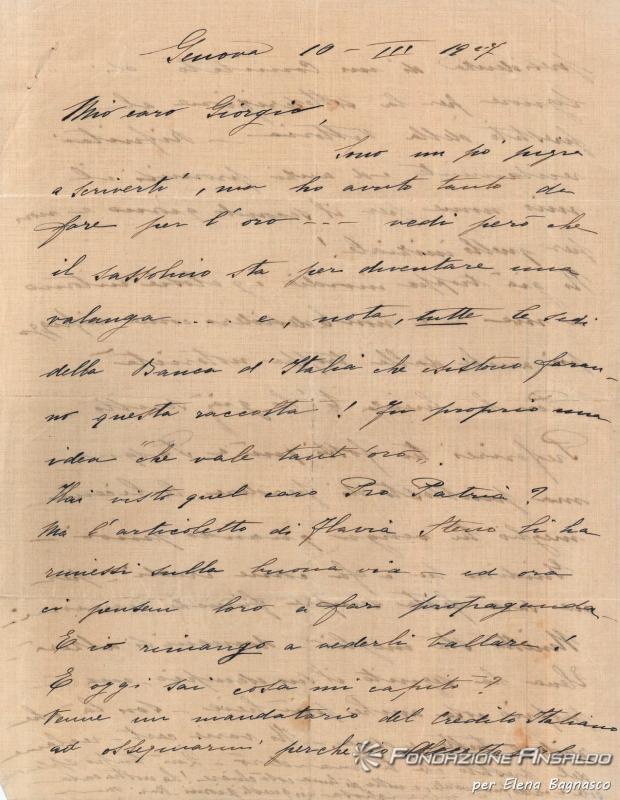 Genova 10 - III 1917
Mio caro Giorgio,
Sono un po' pigra
a scriverti, ma ho avuto tanto da
fare per l'oro - - - vedi però che
il sassolino sta per diventare una
valanga . . . . e, nota, tutte le sedi
della Banca d'Italia che esistono faran-
no questa raccolta! Fu proprio una
idea "che vale tant'oro"
Hai visto quel caro Pro Patria?
Ma l'articoletto di Flavia Steno li ha
rimessi sulla buona via - ed ora
ci pensan loro a far propaganda -
E io rimango a vederli ballare!
E oggi sai cosa mi capitò?
Venne un mandatario del Credito Italiano
ad ossequiarmi perchè io
FONDAZIONE ANSALDO
per Elena Bagnasco